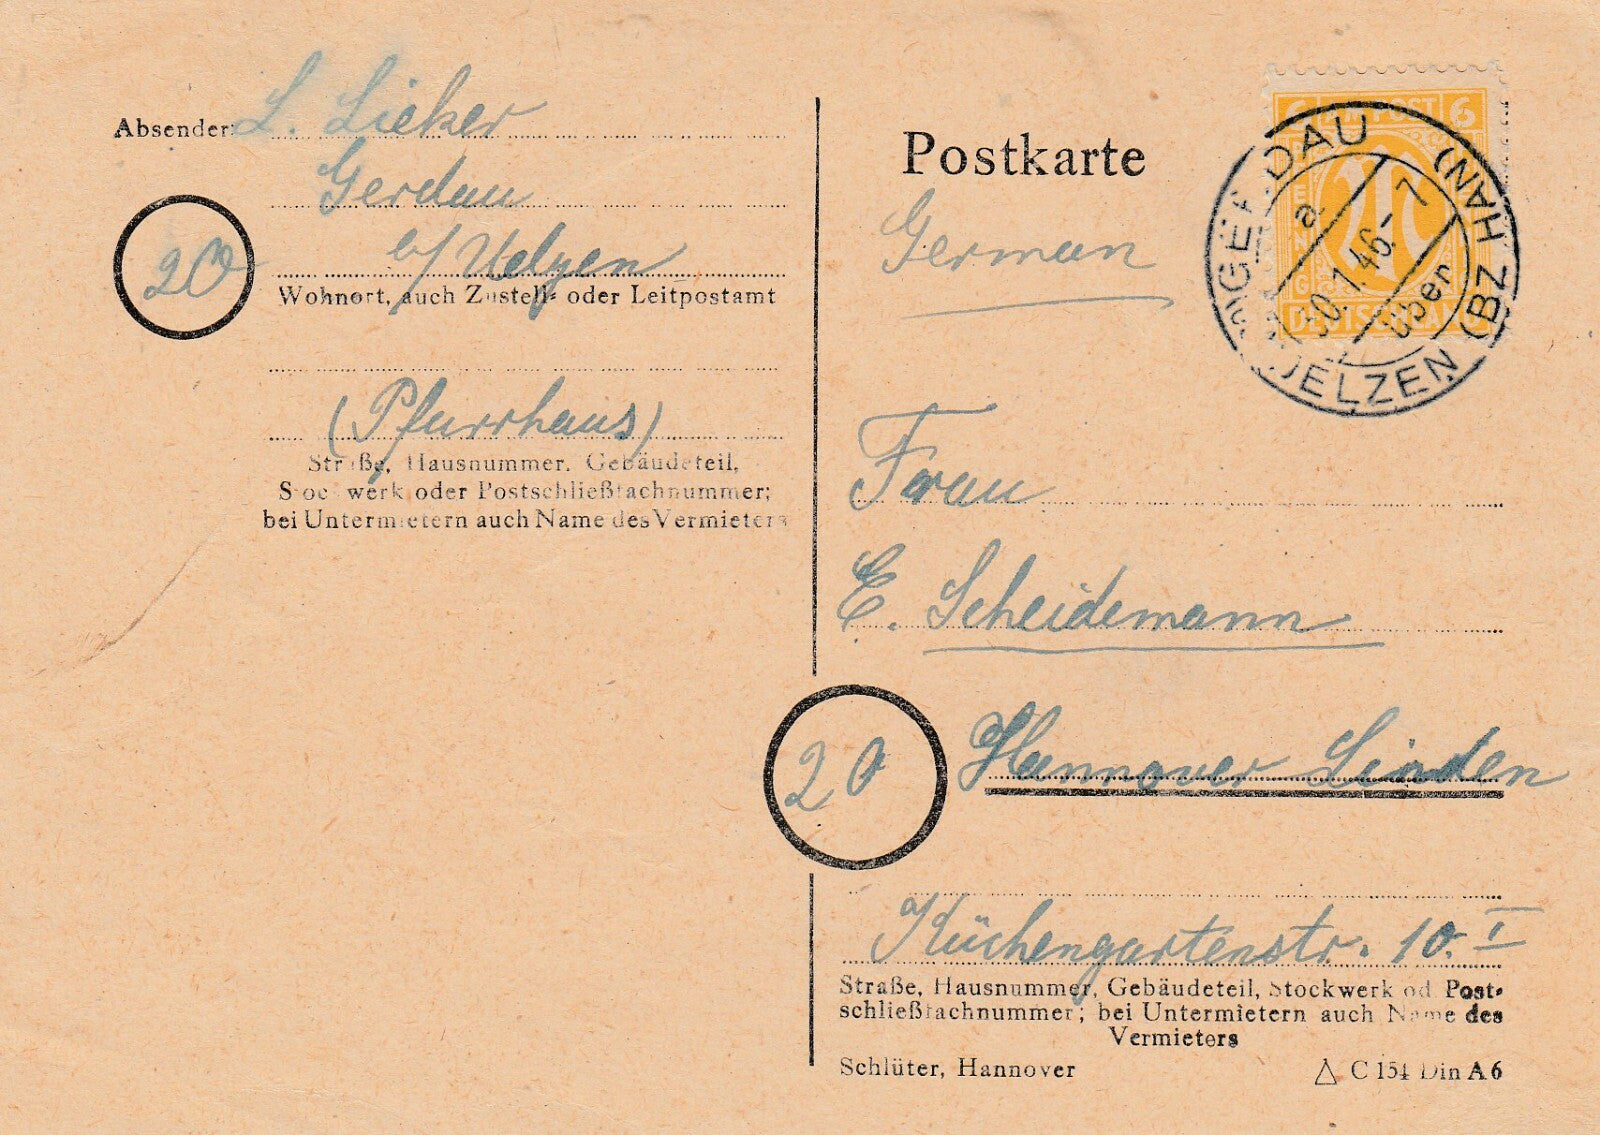 Absender: L. Lieker
Gerdau
20
b/ Uelzen
Wohnort, auch Zustell- oder Leitpostamt
(Pfarrhaus)
Straße, Hausnummer, Gebäudeteil,
Stockwerk oder Postschließfachnummer;
bei Untermietern auch Name des Vermieters
Postkarte
German
6 AM POST 6
PFENNIG
DEUTSCHLAND
GERDAU
über
UELZEN (BZ HAN)
a
30.1.46.- 7
Frau
E. Scheidemann
20
Hannover Linden
Küchengartenstr. 10. I
Straße, Hausnummer, Gebäudeteil, Stockwerk od Post-
schließfachnummer; bei Untermietern auch Name des
Vermieters
Schlüter, Hannover
△ C 154 Din A 6